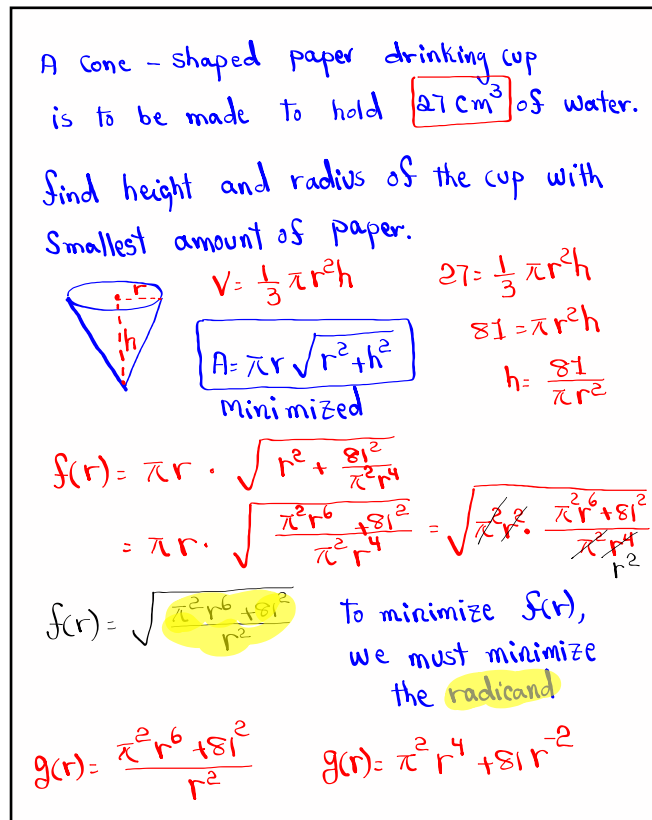 A cone - shaped paper drinking cup
is to be made to hold 27 cm³ of water.
find height and radius of the cup with
smallest amount of paper.
r
h
V = 1/3 πr²h
27 = 1/3 πr²h
A = πr √(r²+h²)
81 = πr²h
minimized
h = 81/(πr²)
f(r) = πr · √(r² + 81²/(π²r⁴))
= πr · √((π²r⁶ + 81²)/(π²r⁴)) = √(π²r² · (π²r⁶ + 81²)/(π²r⁴))
r²
f(r) = √((π²r⁶ + 81²)/r²)
To minimize f(r),
we must minimize
the radicand.
g(r) = (π²r⁶ + 81²)/r²
g(r) = π²r⁴ + 81r⁻²